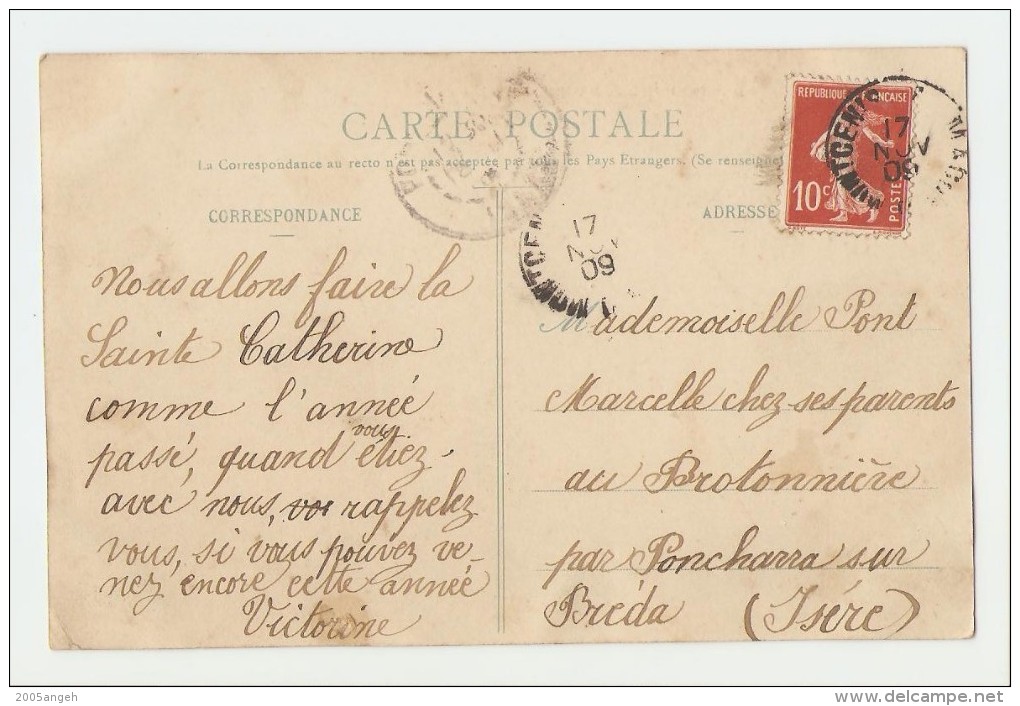 CARTE POSTALE
La Correspondance au recto n'est pas acceptée par tous les Pays Etrangers. (Se renseigner
CORRESPONDANCE
ADRESSE
REPUBLIQUE FRANCAISE
10c
POSTES
MONTCENIS
17
NOV
09
MONTCEN
17
NOV
09
Nous allons faire la
Sainte Catherine
comme l'année
passé, quand vous étiez
avec nous, vos rappelez
vous, si vous pouvez ve-
nez encore cette année
Victorine
Mademoiselle Pont
Marcelle chez ses parents
au Brotonnière
par Poncharra sur
Bréda (Isére)
2005angeh
www.delcampe.net